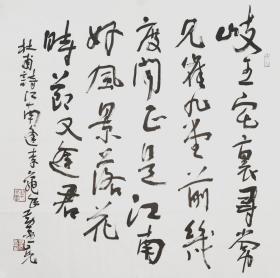 岐王宅裏尋常
見崔九堂前幾
度聞正是江南
好風景落花
時節又逢君
杜甫詩江南逢李龜年